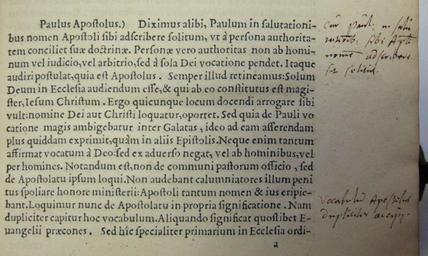 Paulus Apostolus.) Diximus alibi, Paulum in salutationi-
bus nomen Apostoli sibi adscribere solitum, vt à persona authorita-
tem conciliet suæ doctrinæ. Personæ vero authoritas non ab homi-
num vel iudicio, vel arbitrio, sed à sola Dei vocatione pendet. Itaque
audiri postulat, quia est Apostolus. Semper illud retineamus: Solum
Deum in Ecclesia audiendum esse, & qui ab eo constitutus est magi-
ster, Iesum Christum. Ergo quicunque locum docendi arrogare sibi
vult: nomine Dei aut Christi loquatur, oportet. Sed quia de Pauli vo
catione magis ambigebatur inter Galatas, ideo ad eam asserendam
plus quiddam exprimit, quàm in aliis Epistolis. Neque enim tantum
affirmat vocatum à Deo: sed ex aduerso negat, vel ab hominibus, vel
per homines. Notandum est, non de communi pastorum officio, sed
de Apostolatu ipsum loqui. Non audebant calumniatores illum peni
tus spoliare honore ministerii: Apostoli tantum nomen & ius eripie-
bant. Loquimur nunc de Apostolatu in propria significatione. Nam
dupliciter capitur hoc vocabulum. Aliquando significat quoslibet E-
uangelii præcones. Sed hîc specialiter primarium in Ecclesia ordi-
a
sibi
Vocabulū